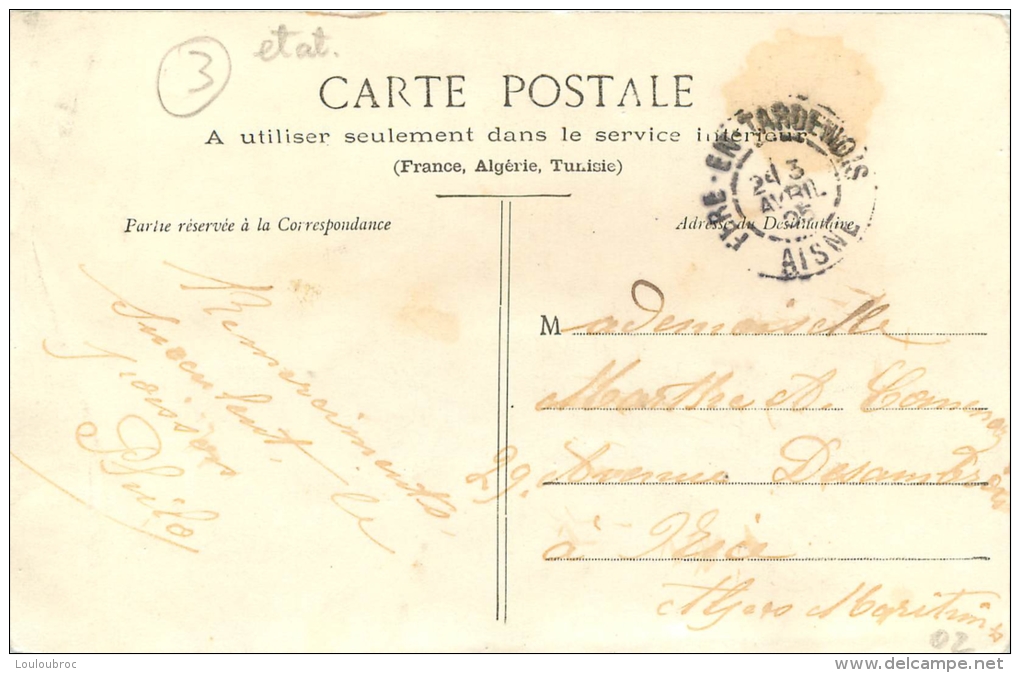 3
etat.
CARTE POSTALE
A utiliser seulement dans le service intérieur
(France, Algérie, Tunisie)
FERE-EN-TARDENOIS
3
AVRIL
05
AISNE
Partie réservée à la Correspondance
Adresse du Destinataire
Remerciments
le
Philo
Mademoiselle
Marthe
29. Avenue
à Nice
Alpes Maritimes
02
Louloubroc
www.delcampe.net